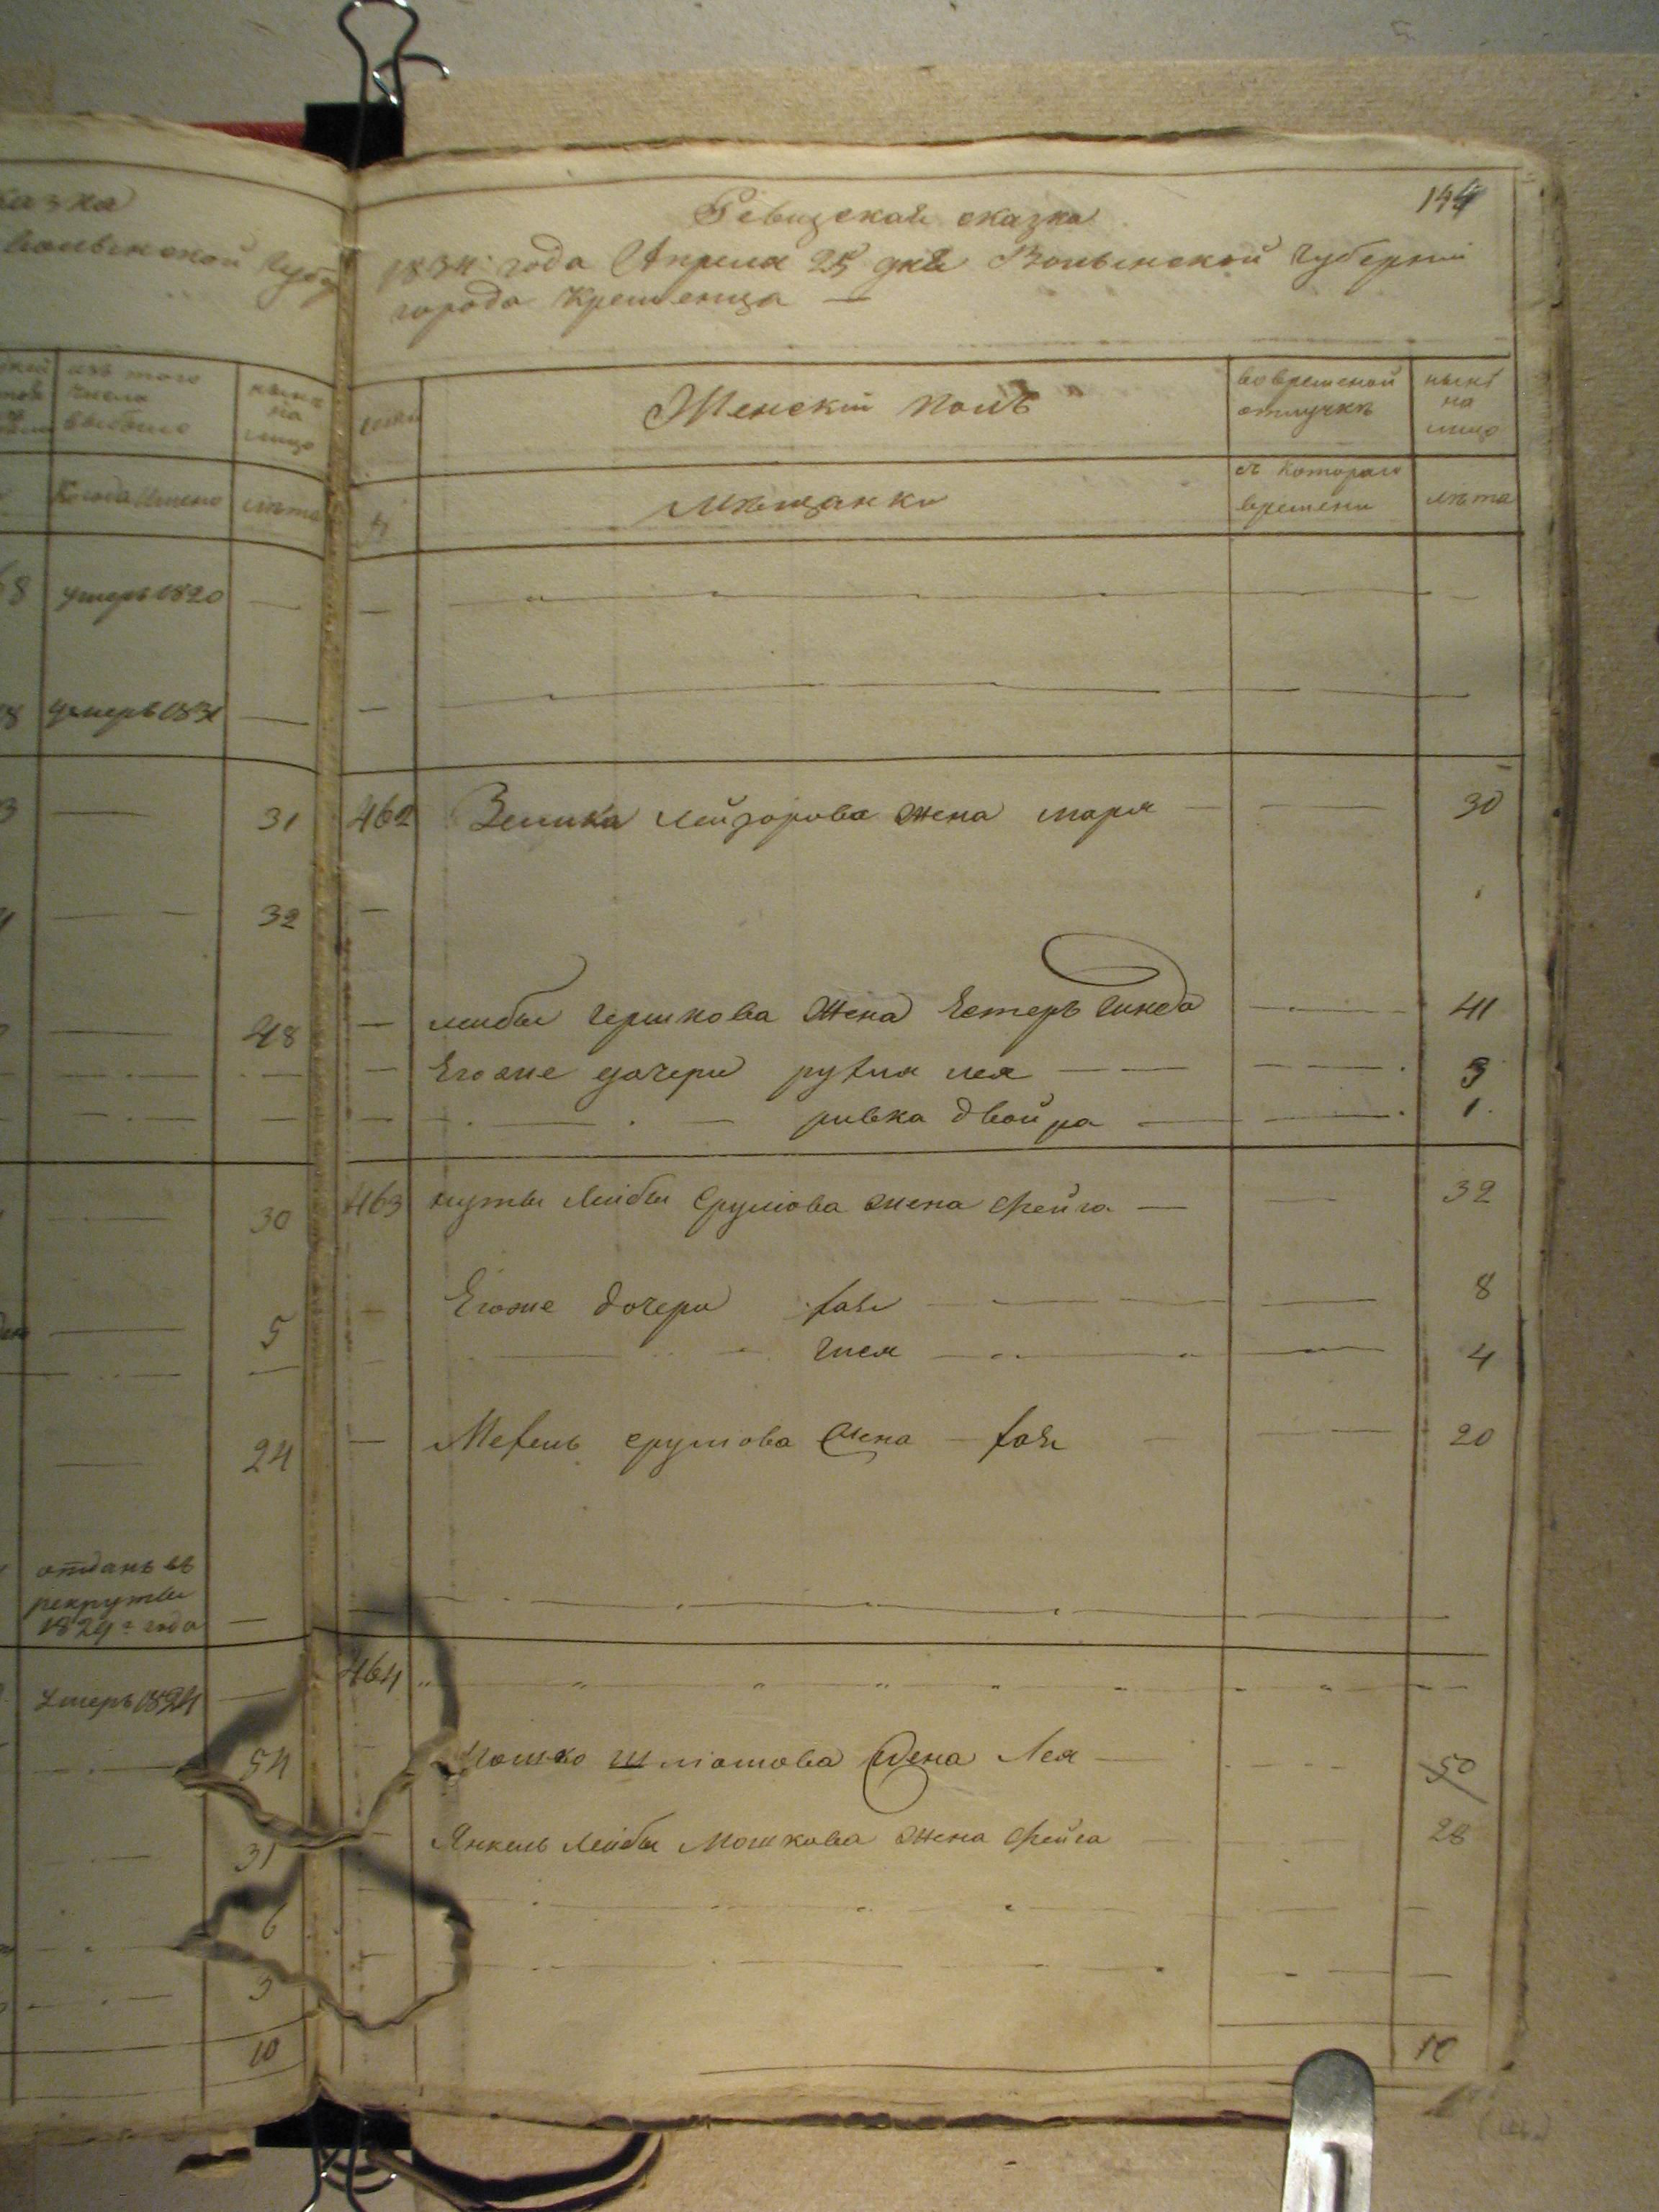 казка
Волынской Губер
изъ того числа выбыло
ныне на лицо
Когда имено
лѣта
умеръ 1820 —
умеръ 1831 —
— 31
— 32
— 48
— 30
— 5
— 24
отданъ въ
рекруты
1829го года —
умеръ 1824 —
54
31
6
3
10
144
Ревизская сказка
1834 года Апреля 25 дня Волынской Губернии
города Кременца —
Женский полъ
во временой отлучке
ныне на лицо
№
Мѣщанки
съ котораго времени
лѣта
462 Зелика Лейзорова жена маря — — 30
— лейбы Гершкова жена Естеръ Гинда — 41
— Его же дочери рухля лея — — 3
— ривка двойра — — 1
463 нуты Лейбы Срулова жена Фейга — — 32
Его же дочери хая — — 8
— гися — — 4
— Мехель срулова жена — хая — — 20
464
Мошко шліомова жена Лея — 50
Янкель Лейбы Мошкова жена Фейга 28
10